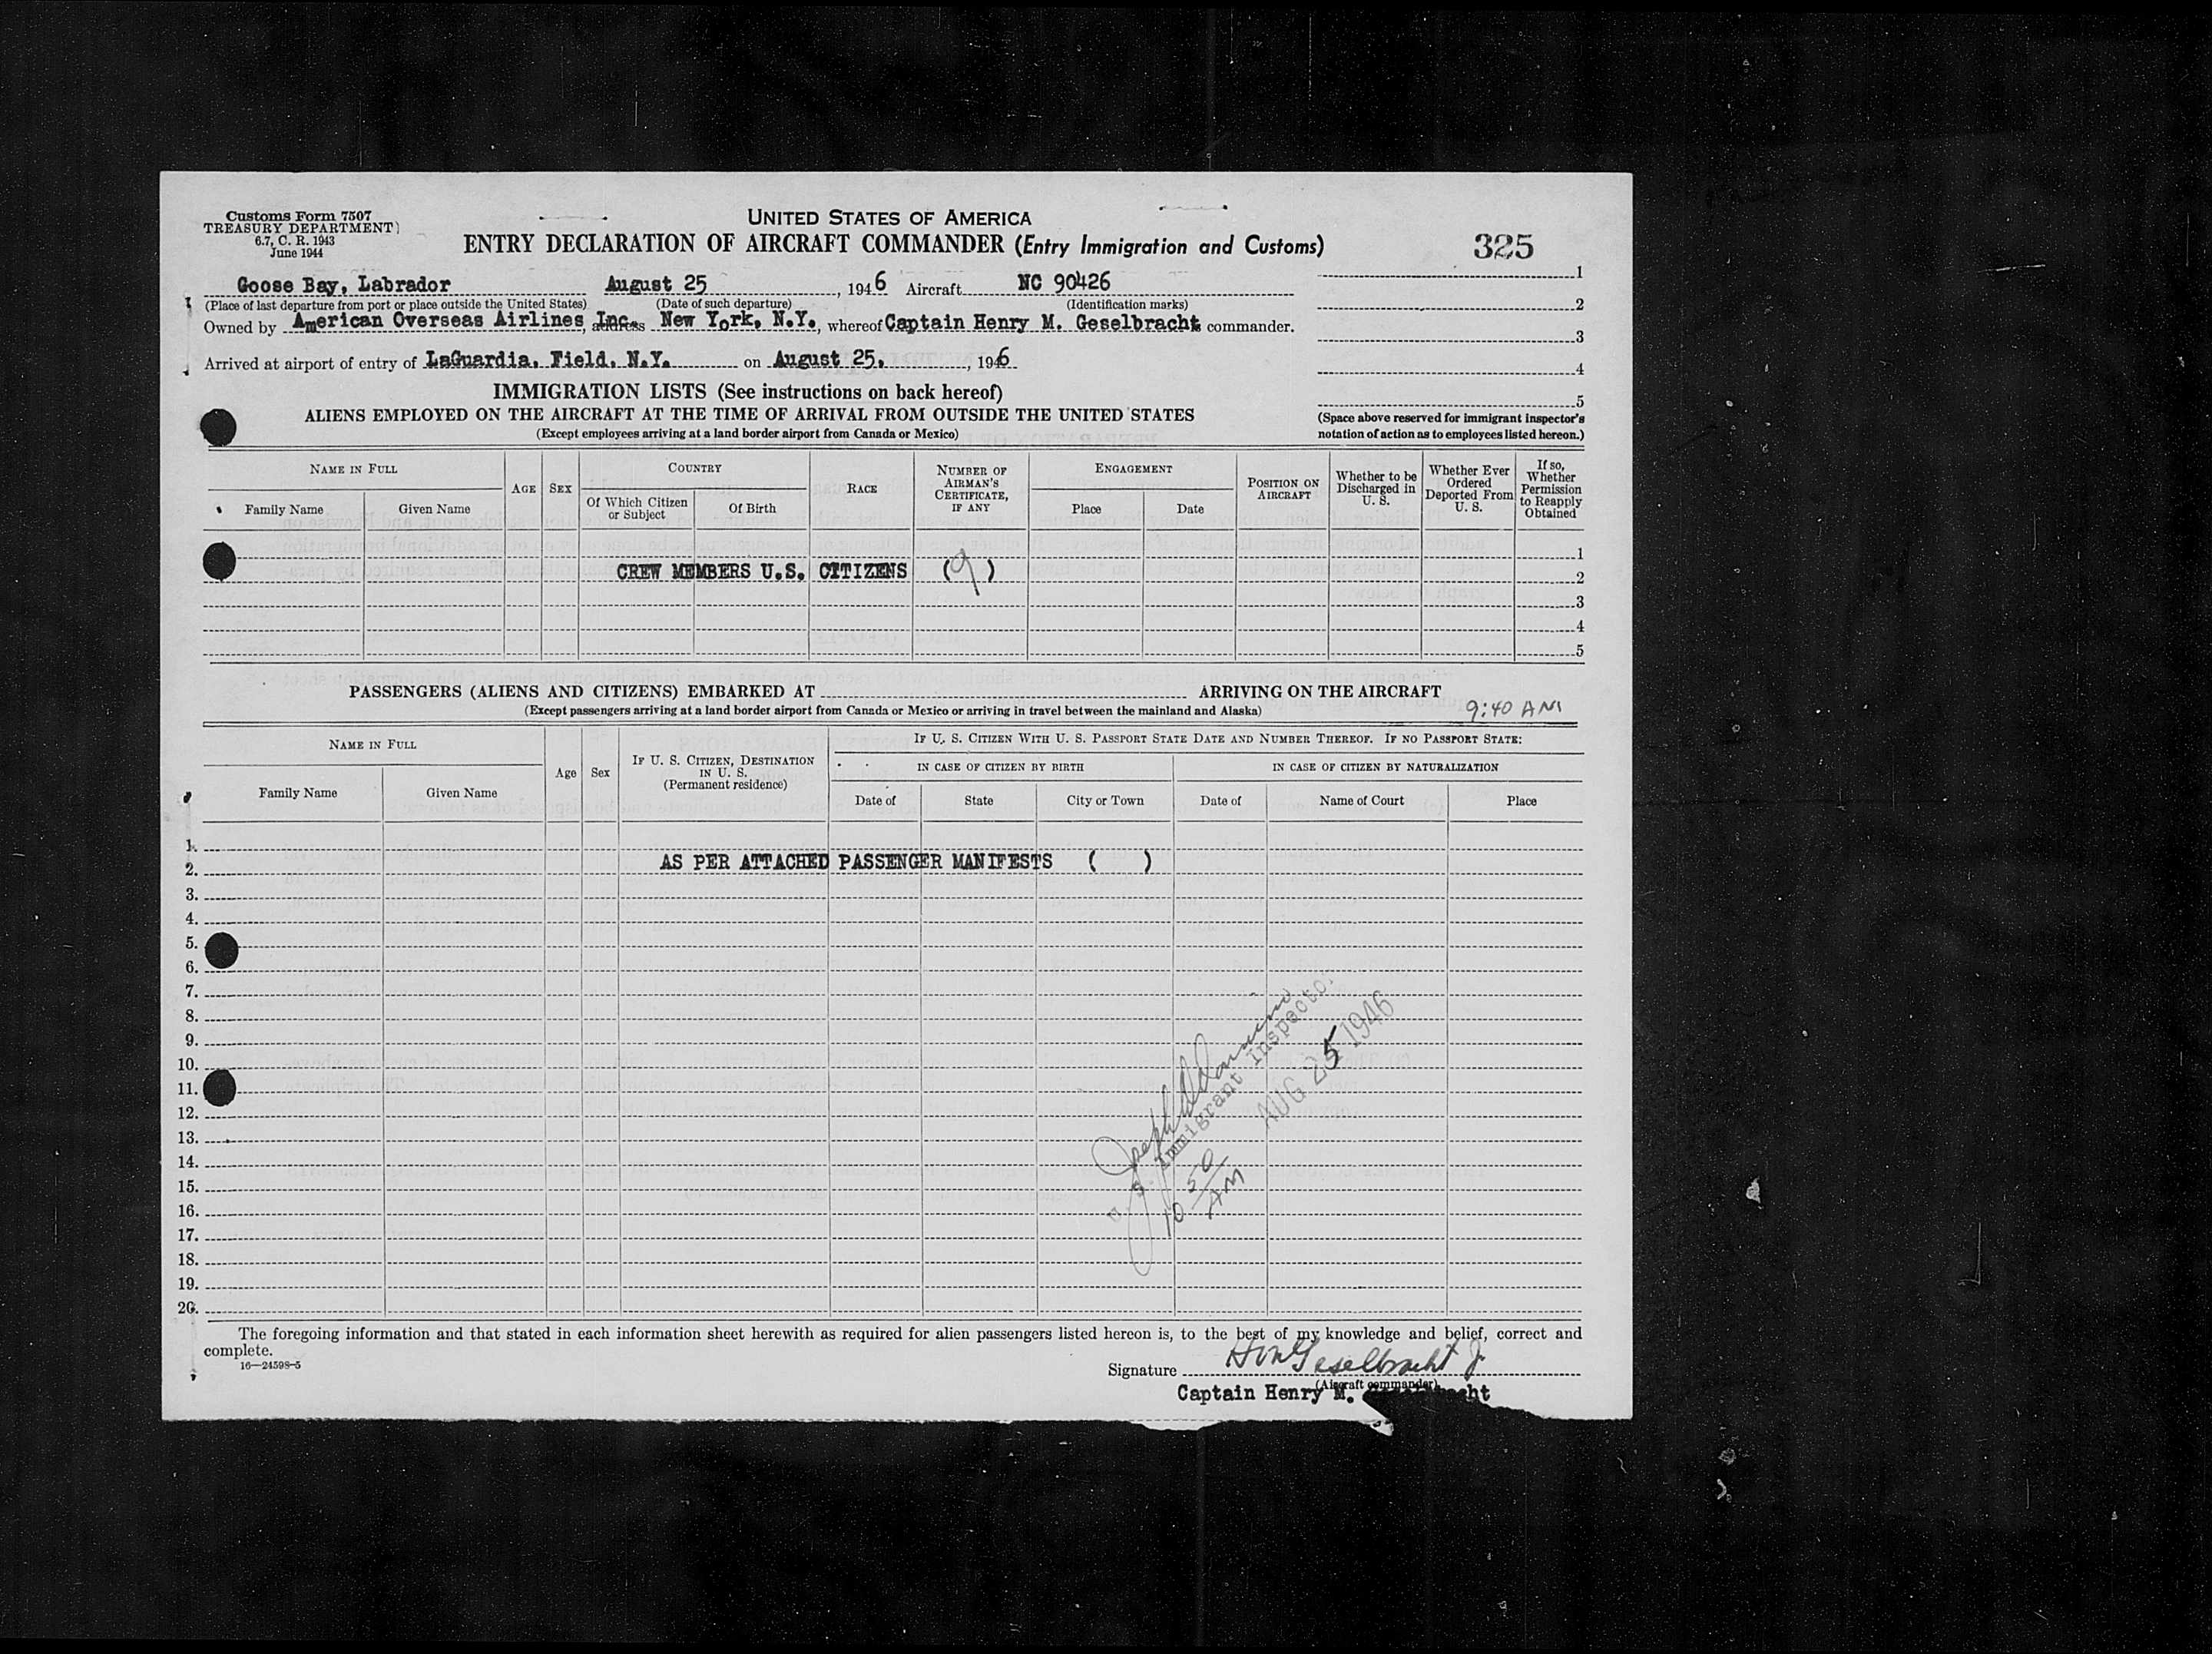 Customs Form 7507
TREASURY DEPARTMENT
6.7, C. R. 1943
June 1944
UNITED STATES OF AMERICA
ENTRY DECLARATION OF AIRCRAFT COMMANDER (Entry Immigration and Customs)
325
Goose Bay, Labrador August 25, 1946 Aircraft NC 90426
(Place of last departure from port or place outside the United States) (Date of such departure) (Identification marks)
Owned by American Overseas Airlines Inc., address New York, N.Y., whereof Captain Henry M. Geselbracht commander.
Arrived at airport of entry of LaGuardia. Field. N.Y. on August 25, , 1946
1
2
3
4
5
(Space above reserved for immigrant inspector's
notation of action as to employees listed hereon.)
IMMIGRATION LISTS (See instructions on back hereof)
ALIENS EMPLOYED ON THE AIRCRAFT AT THE TIME OF ARRIVAL FROM OUTSIDE THE UNITED STATES
(Except employees arriving at a land border airport from Canada or Mexico)
NAME IN FULL
Family Name Given Name
AGE SEX
COUNTRY
Of Which Citizen or Subject Of Birth
RACE
NUMBER OF AIRMAN'S CERTIFICATE, IF ANY
ENGAGEMENT
Place Date
POSITION ON AIRCRAFT
Whether to be Discharged in U. S.
Whether Ever Ordered Deported From U. S.
If so, Whether Permission to Reapply Obtained
1
CREW MEMBERS U.S. CITIZENS (9) 2
3
4
5
PASSENGERS (ALIENS AND CITIZENS) EMBARKED AT ARRIVING ON THE AIRCRAFT
(Except passengers arriving at a land border airport from Canada or Mexico or arriving in travel between the mainland and Alaska)
9:40 AM
NAME IN FULL
Family Name Given Name
Age Sex
IF U. S. CITIZEN, DESTINATION IN U. S.
(Permanent residence)
IF U. S. CITIZEN WITH U. S. PASSPORT STATE DATE AND NUMBER THEREOF. IF NO PASSPORT STATE:
IN CASE OF CITIZEN BY BIRTH IN CASE OF CITIZEN BY NATURALIZATION
Date of State City or Town Date of Name of Court Place
1.
2. AS PER ATTACHED PASSENGER MANIFESTS ( )
3.
4.
5.
6.
7.
8.
9.
10.
11.
12.
13.
14.
15.
16.
17.
18.
19.
20.
Joseph
U. S. Immigrant Inspector
AUG 25 1946
10 50 AM
The foregoing information and that stated in each information sheet herewith as required for alien passengers listed hereon is, to the best of my knowledge and belief, correct and
complete.
16—24598-5
Signature HM Geselbracht Jr
(Aircraft commander)
Captain Henry M. Geselbracht